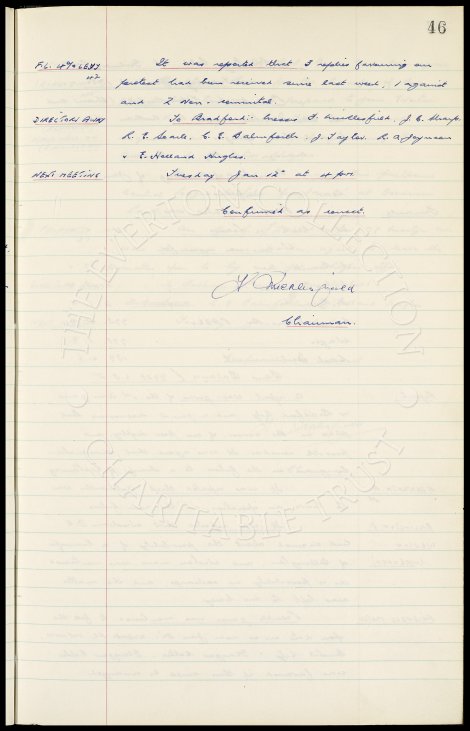 46
F.L. 4% LEVY It was reported that 7 replies favouring our
protest had been received since last week, 1 against
and 2 non-committal.
DIRECTORS AWAY To Bradford:- Messrs J. C. Sharp,
R. E. Searle, C. E. Balmforth, J. Taylor, R. A. Joynson
& E. Holland Hughes.
NEXT MEETING Tuesday Jan 12th at 4 p.m.
Confirmed as correct.
Chairman.
THE EVERTON COLLECTION
CHARITABLE TRUST